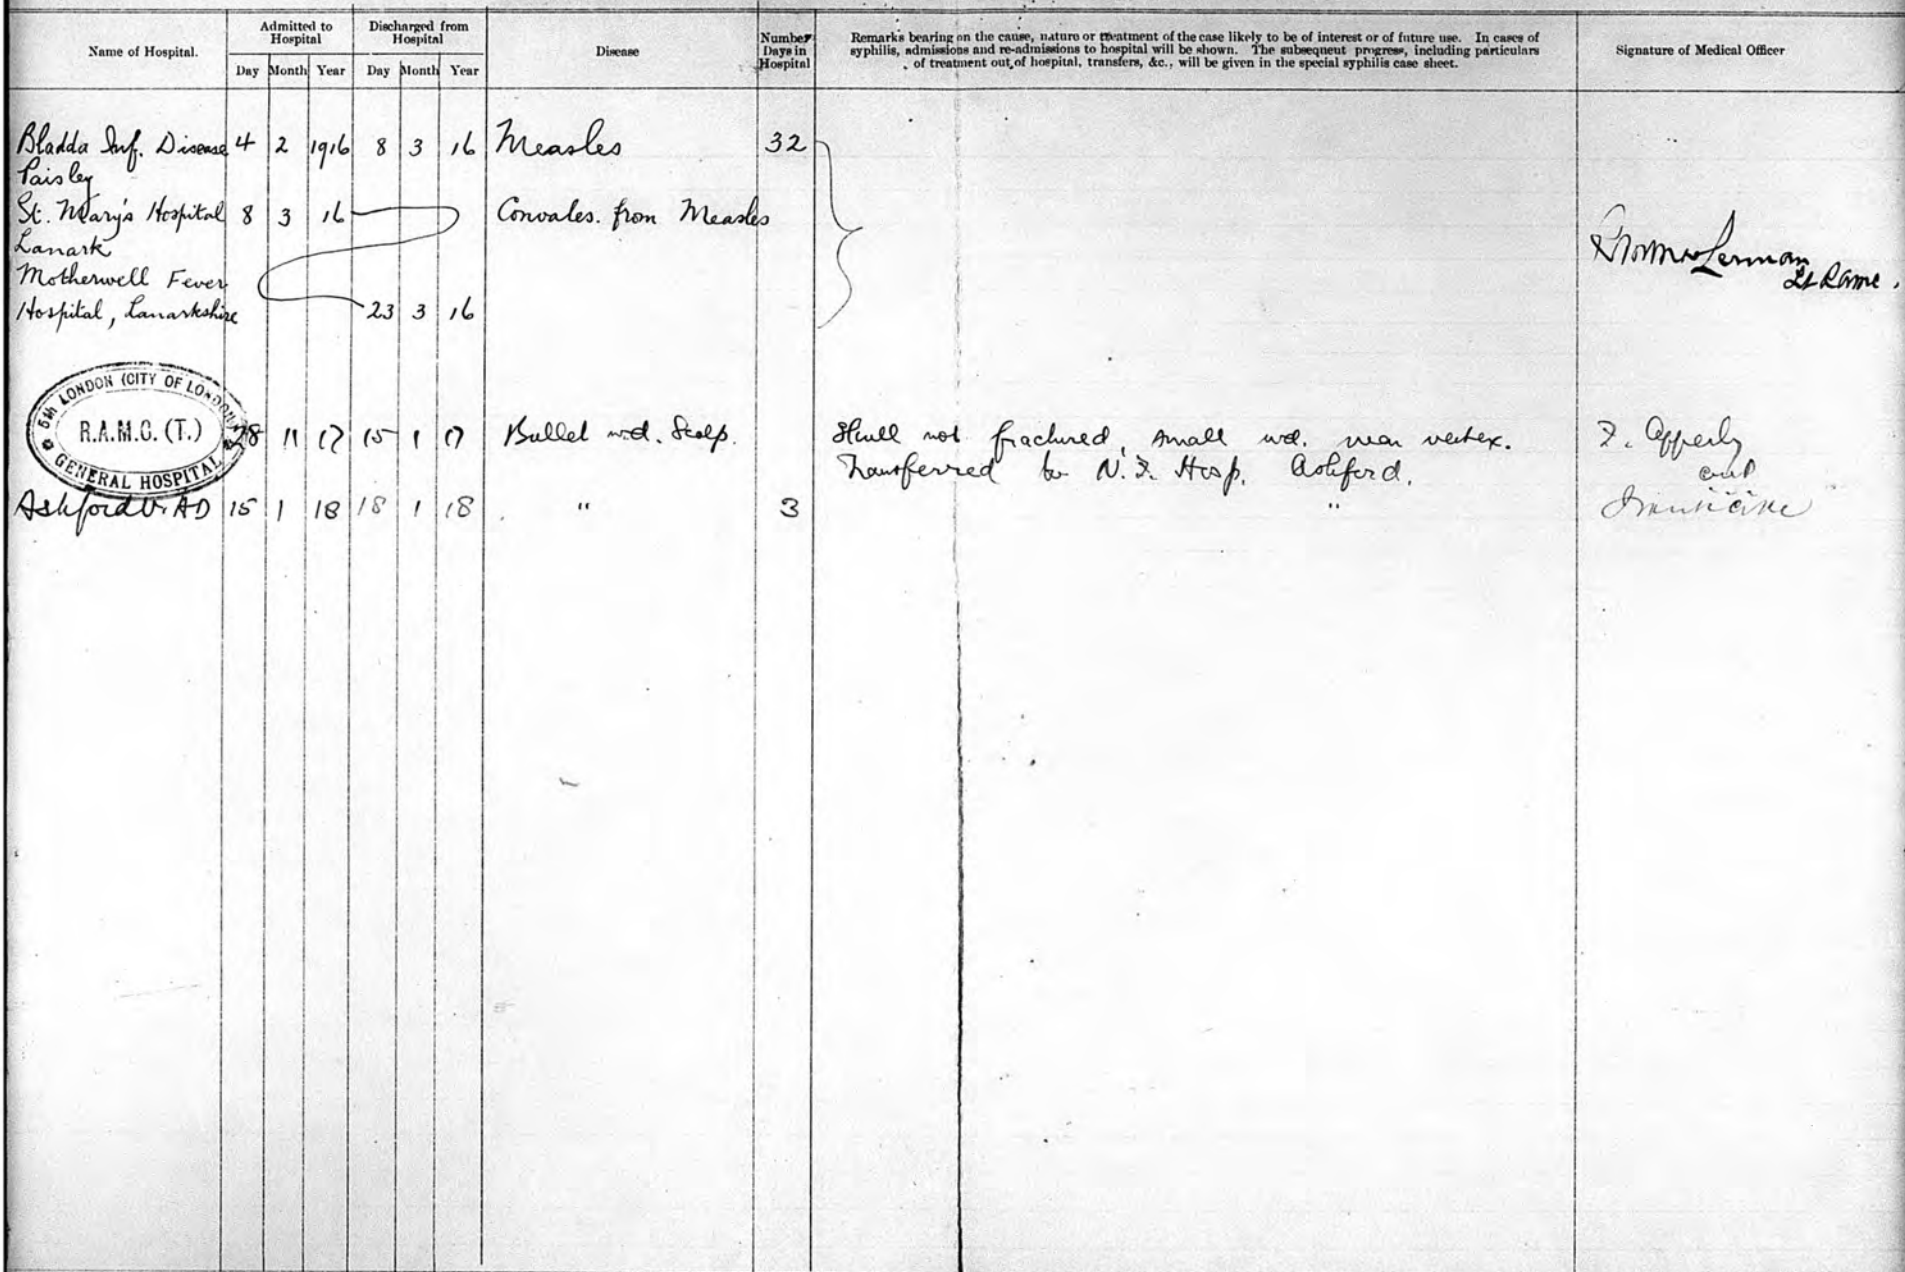 Name of Hospital.
Admitted to Hospital
Discharged from Hospital
Day Month Year Day Month Year
Disease
Number Days in Hospital
Remarks bearing on the cause, nature or treatment of the case likely to be of interest or of future use. In cases of
syphilis, admissions and re-admissions to hospital will be shown. The subsequent progress, including particulars
of treatment out of hospital, transfers, &c., will be given in the special syphilis case sheet.
Signature of Medical Officer
Bladda Inf. Disease 4 2 1916 8 3 16 Measles 32
Paisley
St. Mary's Hospital 8 3 16 Convales. from Measles
Lanark
Motherwell Fever
Hospital, Lanarkshire 23 3 16
Lt Ramc.
5th LONDON (CITY OF LONDON)
R.A.M.C. (T.)
GENERAL HOSPITAL
28 11 17 15 1 17 Bullet wd. Scalp. Skull not fractured, small wd. near vertex. F. Apperly
Transferred to V.A. Hosp. Ashford.
Ashford V.AD 15 1 18 18 1 18 " 3 "